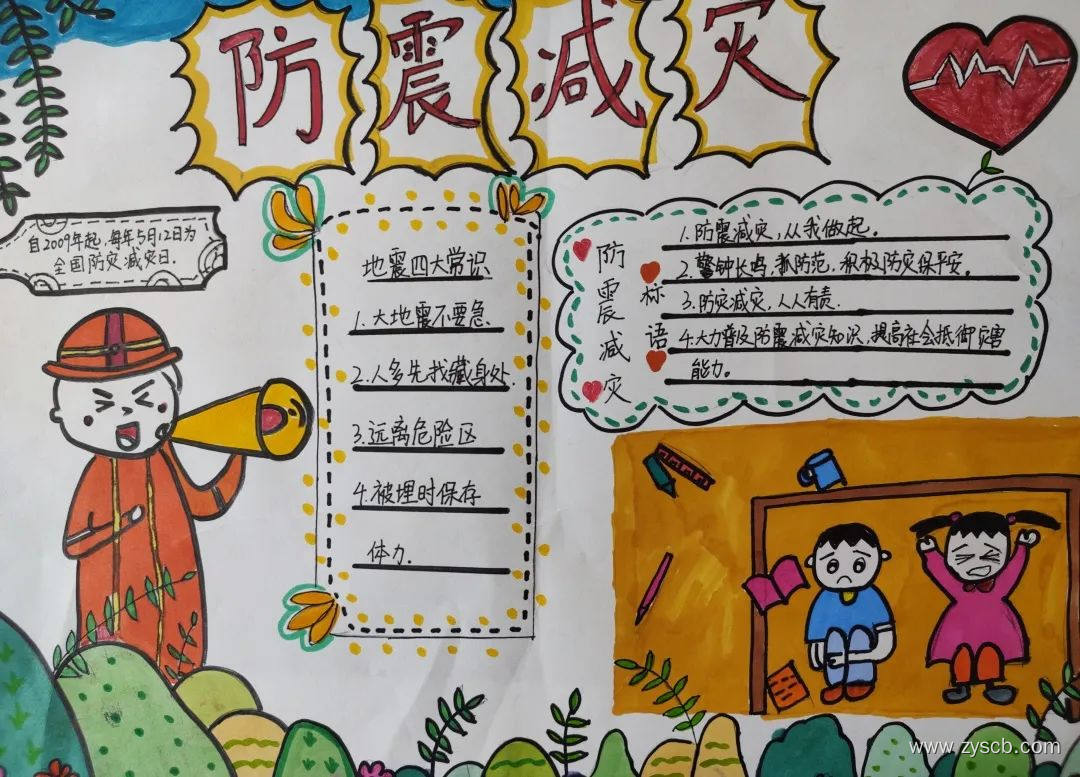 防震减灾
自2009年起,每年5月12日为
全国防灾减灾日.
地震四大常识
1.大地震不要急.
2.人多先找藏身处.
3.远离危险区
4.被埋时保存
体力.
防震减灾
标语
1.防震减灾,从我做起.
2.警钟长鸣,抓防范,积极防灾保平安.
3.防灾减灾,人人有责.
4.大力普及防震减灾知识,提高社会抵御灾害
能力。
www.zyscb.com